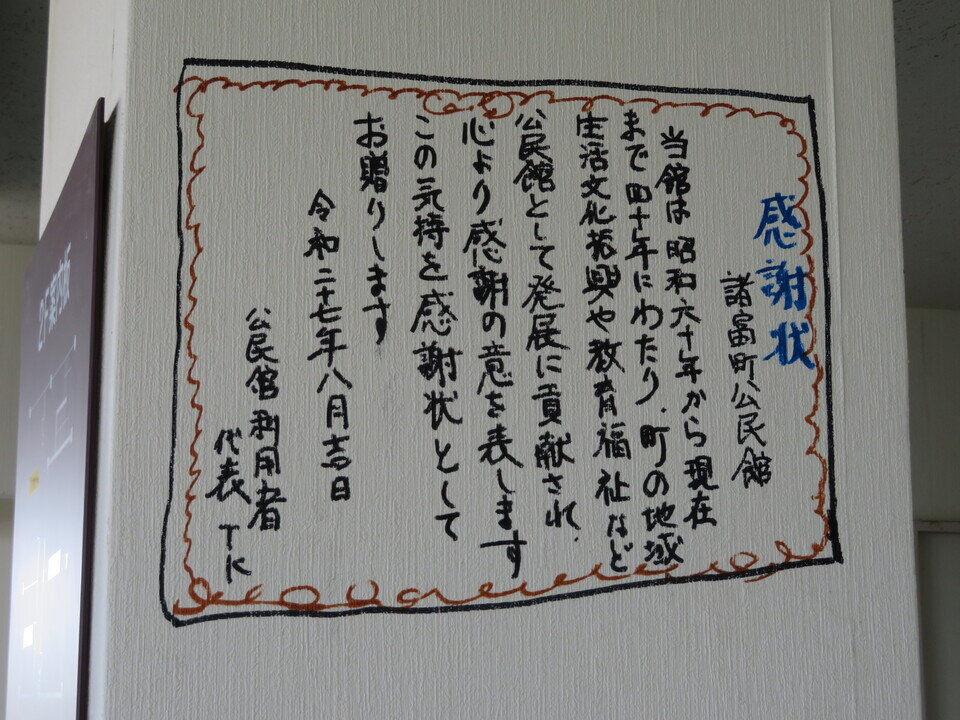 感謝状
諸富町公民館
当館は昭和六十年から現在
まで四十年にわたり、町の地域
生活文化振興や教育福祉など
公民館として発展に貢献され、
心より感謝の意を表します
この気持を感謝状として
お贈りします
令和二十七年八月吉日
公民館利用者
代表 TK
2F案内図